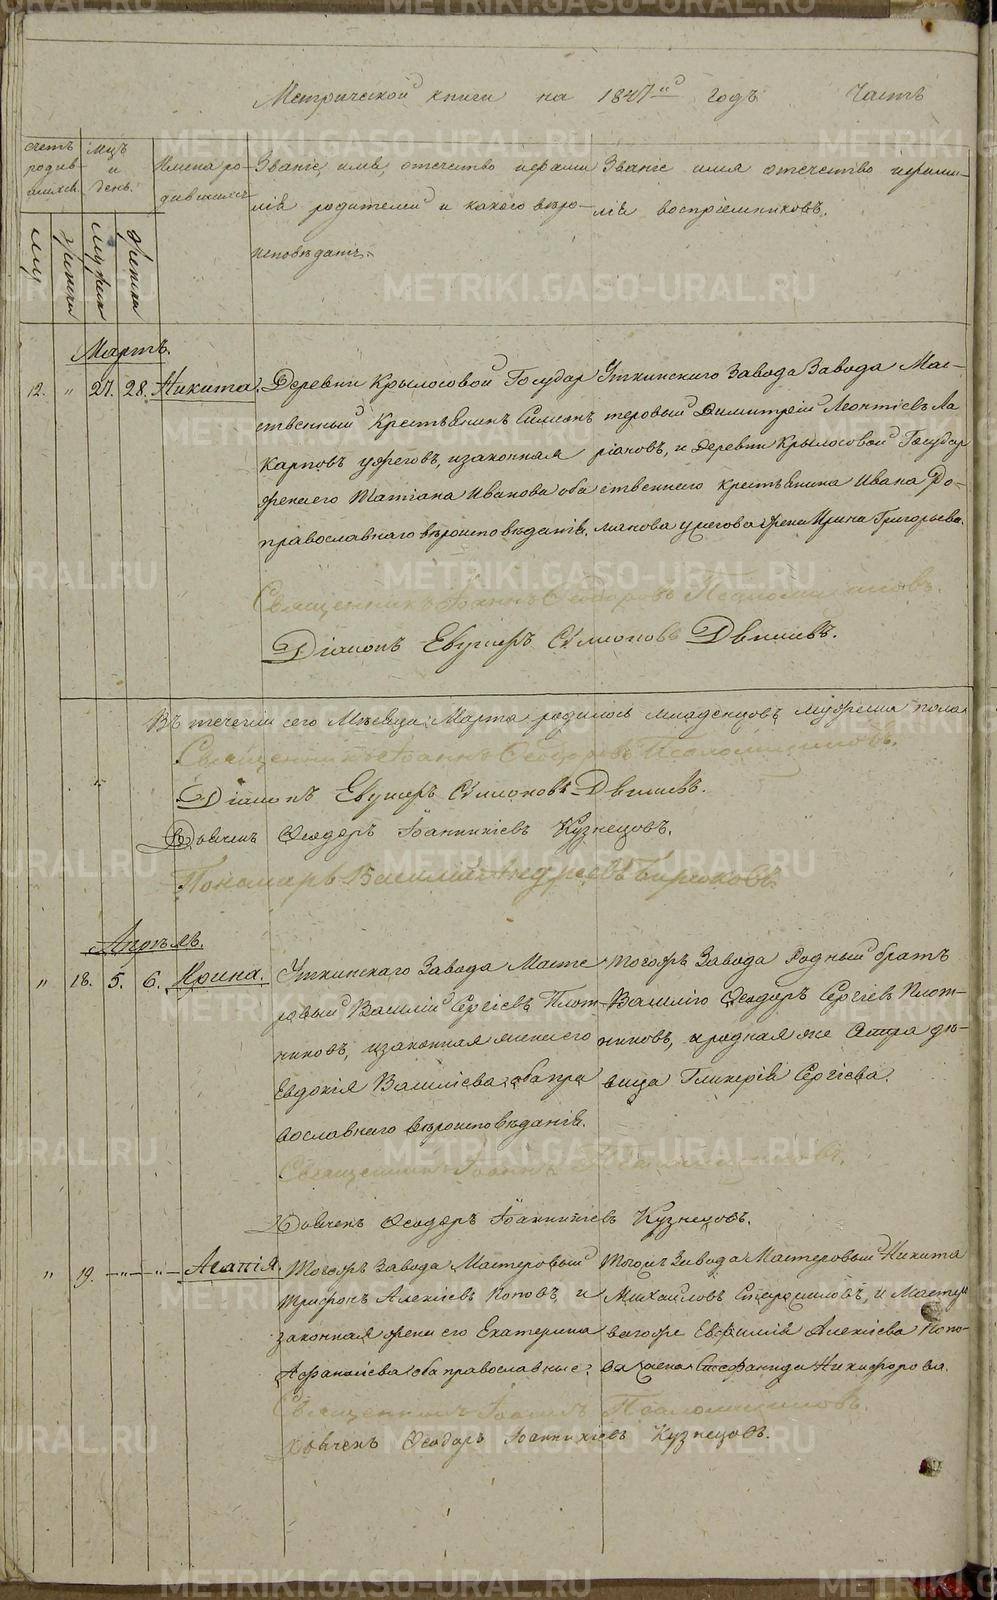 Метрической книги на 1847й Годъ Часть
счетъ родившихся
мцъ и день
Имена родившихся
Званіе, имя, отечество и фамилія родителей и какого вѣроисповѣданія
Званіе имя отечество и фамилія воспріемниковъ.
Мартъ.
12. " 27. 28. Никита.
Деревни Крылосовой Государ
ственный Крестьянинъ Симеонъ
Карповъ и законная
жена его Татіана Иванова оба
православнаго вѣроисповѣданія.
Уткинскаго Завода Завода Мас-
теровый Димитрій Леонтіевъ Ла
ріоновъ, и Деревни Крылосовой Государ
ственнаго крестьянина Ивана Ро-
манова жена Ирина Григорьева.
Священникъ Іоаннъ Ѳеодоровъ
Діаконъ Симеоновъ
Въ теченіи сего Мѣсяца Марта родилось младенцовъ мужеска пола
Священникъ Іоаннъ Ѳеодоровъ
Діаконъ Симеоновъ
Дьячекъ Ѳеодоръ Іоанникіевъ Кузнецовъ.
Пономарь Василій Андреевъ Бирюковъ
Апрѣль.
" 18. 5. 6. Ирина.
Уткинскаго Завода Масте
ровый Василій Сергіевъ Плот-
никовъ, и законная жена его
Евдокія Василіева оба пра
вославнаго вѣроисповѣданія.
Тогожъ Завода Родный братъ
Василію Ѳеодоръ Сергіевъ Плот-
никовъ, и родная же сестра дѣ-
вица Гликерія Сергіева.
Священникъ Іоаннъ
Дьячекъ Ѳеодоръ Іоанникіевъ Кузнецовъ.
" 19. - " - " - Агапія.
Тогожъ Завода Мастеровый
Трифонъ Алексіевъ Поповъ и
законная жена его Екатерина
Аѳанасіева оба православные.
Тогожъ Завода Мастеровый Никита
Михайловъ Старосиловъ, и Масте
Алексіева Попо-
ва жена Стефанида Никифорова.
Священникъ Іоаннъ
Дьячекъ Ѳеодоръ Іоанникіевъ Кузнецовъ.
METRIKI.GASO-URAL.RU